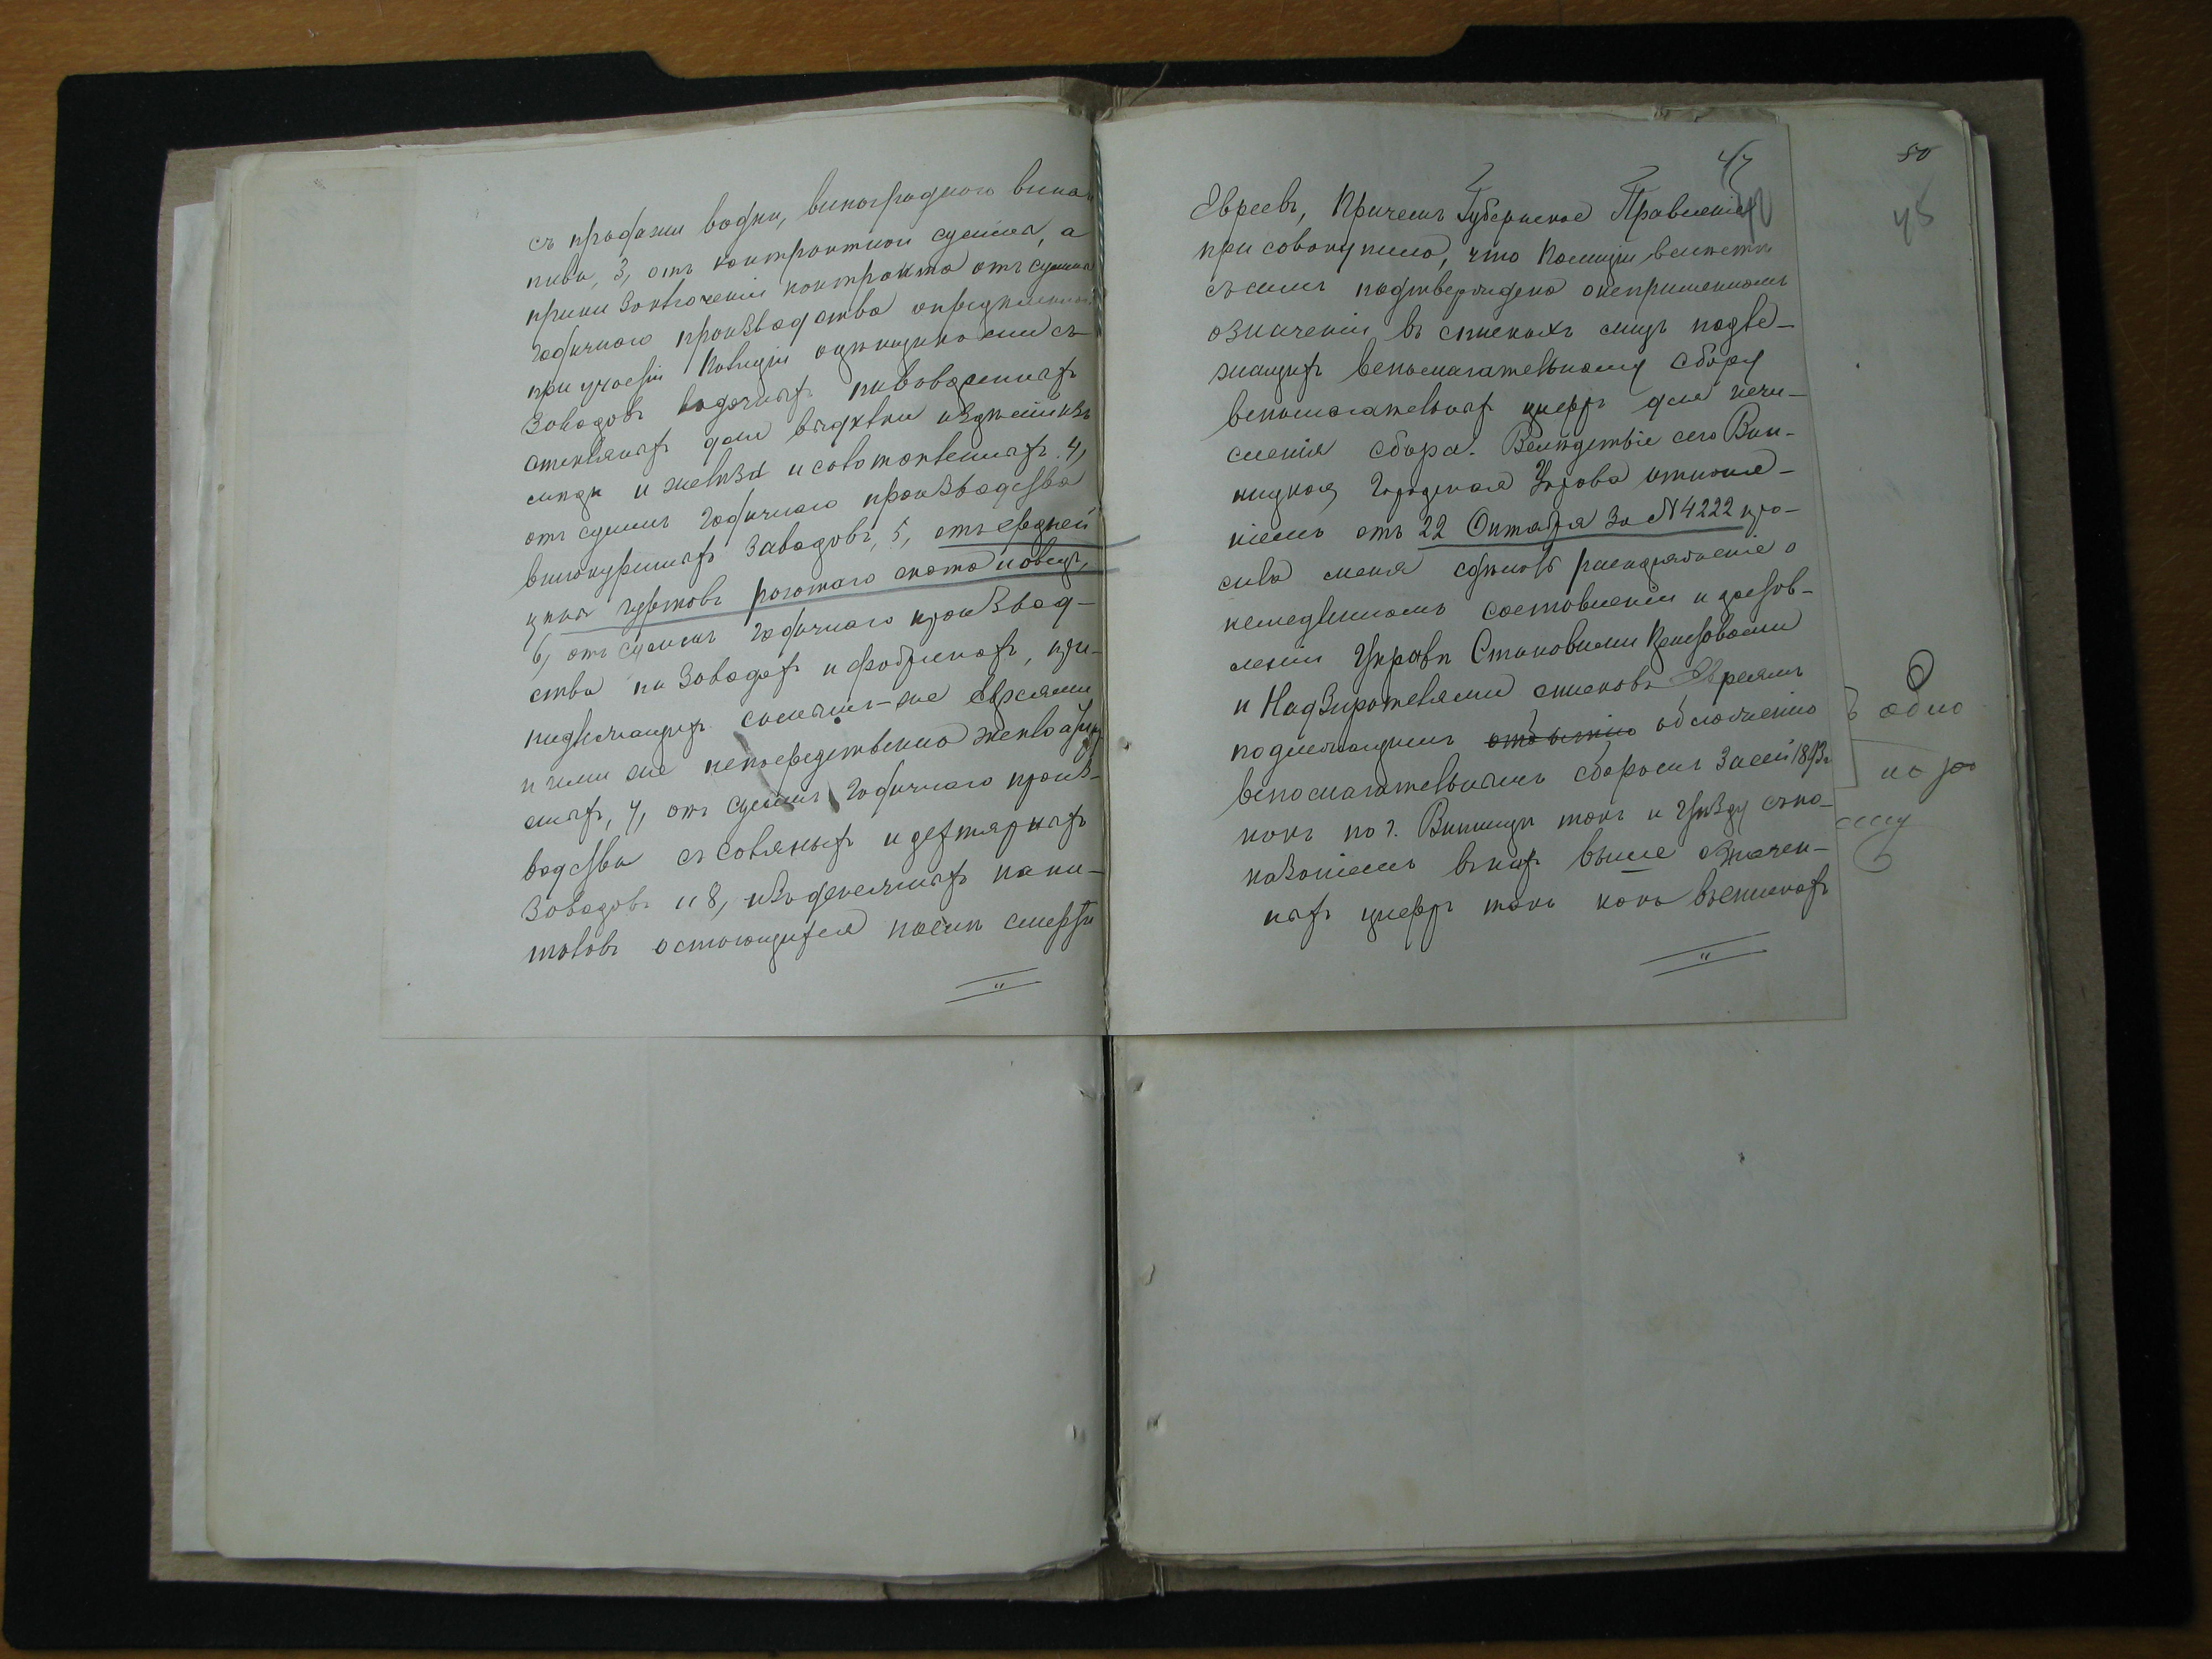 съ продажи водки, винограднаго вина и
пива, 3, отъ контрактной суммы, а
при заключеніи контракта отъ суммы
годичнаго производства опредѣленной
при участіи Полиціи оцѣнщиками съ
заводовъ водочныхъ пивоваренныхъ
стеклянныхъ для выдѣлки издѣлій изъ
мѣди и желѣза и салотопленныхъ. 4,
отъ суммы годичнаго производства
винокуренныхъ заводовъ, 5, отъ средней
цѣны гуртовъ рогатаго скота и овецъ,
6, отъ суммы годичнаго производ-
ства на заводахъ и фабрикахъ, при-
надлежащихъ самимъ-же Евреямъ
и ими же непосредственно эксплоатиру
емыхъ, 7, отъ суммы годичнаго произ-
водства съ соляныхъ и дегтярныхъ
заводовъ и 8, изъ денежныхъ капи-
таловъ остающихся послѣ смерти
47
50
45
Евреевъ, Причемъ Губернское Правленіе
присовокупило, что Полиціи вмѣстѣ
съ симъ подтверждено о непримѣнномъ
означеніи въ спискахъ лицъ подле-
жащихъ вспомогательному сбору
вспомогательныхъ цифръ для исчи-
сленія сбора. Вслѣдствіе сего Вин-
ницкая Городская Управа отноше-
ніемъ отъ 22 Октября за № 4222 про-
сила меня сдѣлать распоряженіе о
немедленномъ составленіи и достав-
леніи Управѣ Становыми Приставами
и Надзирателями списковъ Евреямъ
подлежащимъ обложенію
вспомогательнымъ сборомъ за сей 1893 г.
какъ по г. Винницѣ такъ и Уѣзду съ по-
казаніемъ въ нихъ выше означен-
ныхъ цифръ такъ какъ въ спискахъ